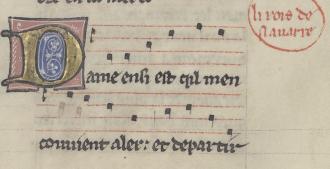 li rois de
nauarre
Dame ensi est qil men
conuient aler: et departir